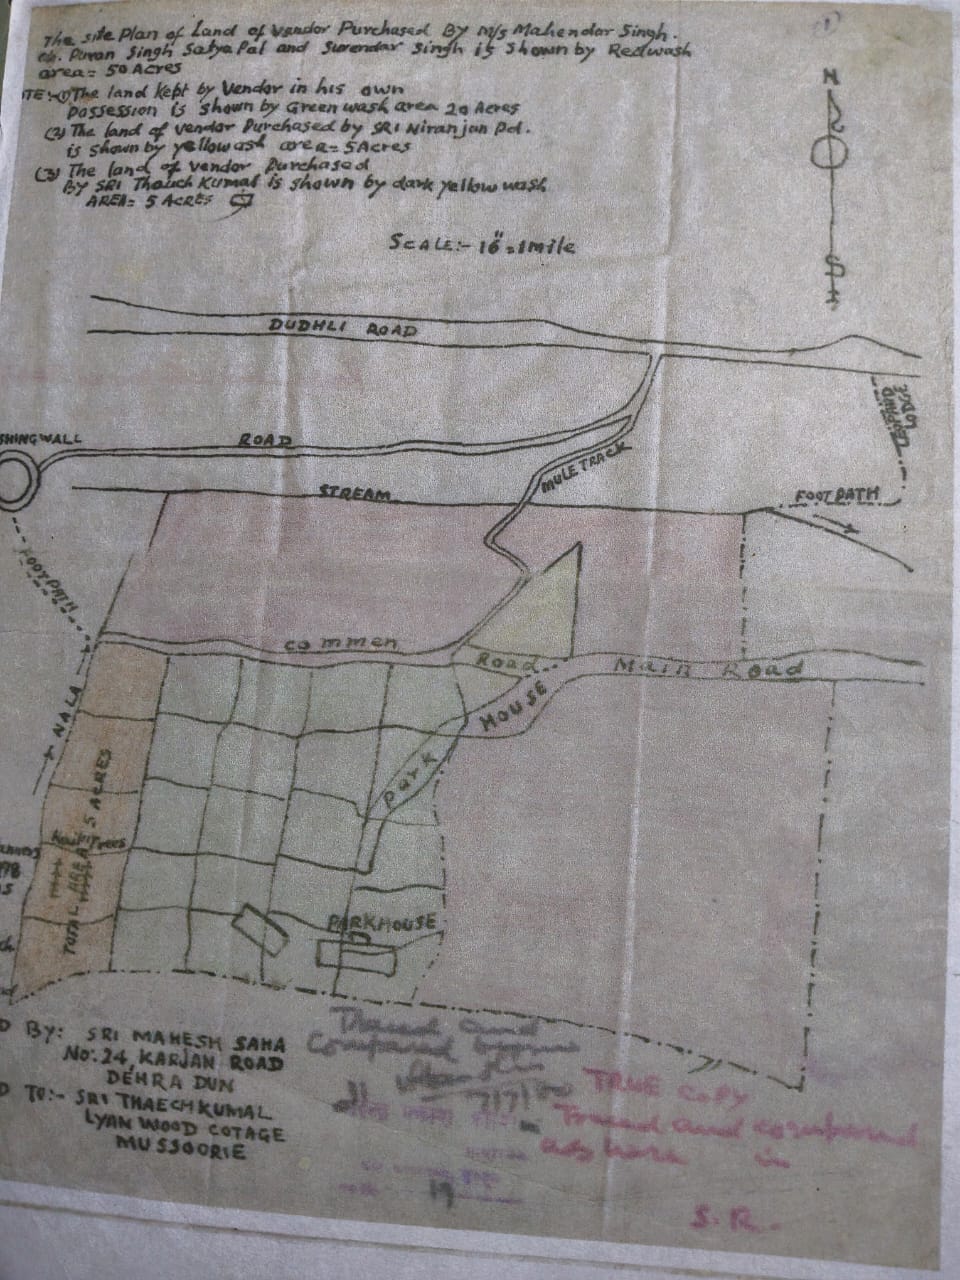 The site Plan of Land of Vendor Purchased By M/s Mahendar Singh.
Ch. Puran Singh Satya Pal and Surendar Singh is shown by Redwash
area = 50 Acres
The land kept by Vendor in his own
possession is shown by Green wash area 20 Acres
(2) The land of vendor Purchased by SRI Niranjan Pd.
is shown by yellowash area = 5 Acres
(3) The land of vendor Purchased
By SRI Thaech Kumal is shown by dark yellow wash
AREA = 5 ACRES
N
SCALE:- 16" = 1 mile
S
DUDHLI ROAD
SHINGWALL
ROAD
MULE TRACK
STREAM
FOOTPATH
FOOTPATH
Commen
Road
Main Road
NALA
HOUSE
Park
TOTAL AREA 5 ACRES
Trees
PARKHOUSE
BY: SRI MAHESH SAHA
No: 24, KARJAN ROAD
DEHRA DUN
TO:- SRI THAECHKUMAL
LYAN WOOD COTAGE
MUSSOORIE
Traced and
Compared
TRUE COPY
Traced and compared
in
19
S. R.